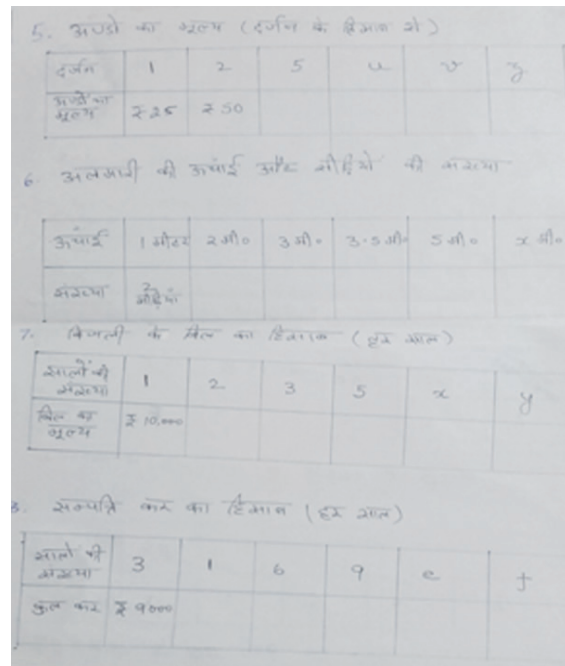 5. अण्डो का मूल्य (दर्जन के हिसाब से)
दर्जन 1 2 5 u v z
अण्डों का मूल्य ₹25 ₹50
6. अलमारी की ऊचांई और सीढ़ियो की संख्या
ऊंचाई 1 मीटर 2 मी० 3 मी० 3.5 मी० 5 मी० x मी०
संख्या 2 सीढ़ियां
7. बिजली के बिल का हिसाब (हर साल)
सालों की संख्या 1 2 3 5 x y
बिल का मूल्य ₹10,000
8. सम्पत्ति कर का हिसाब (हर साल)
सालो की संख्या 3 1 6 9 e f
कुल कर ₹9000